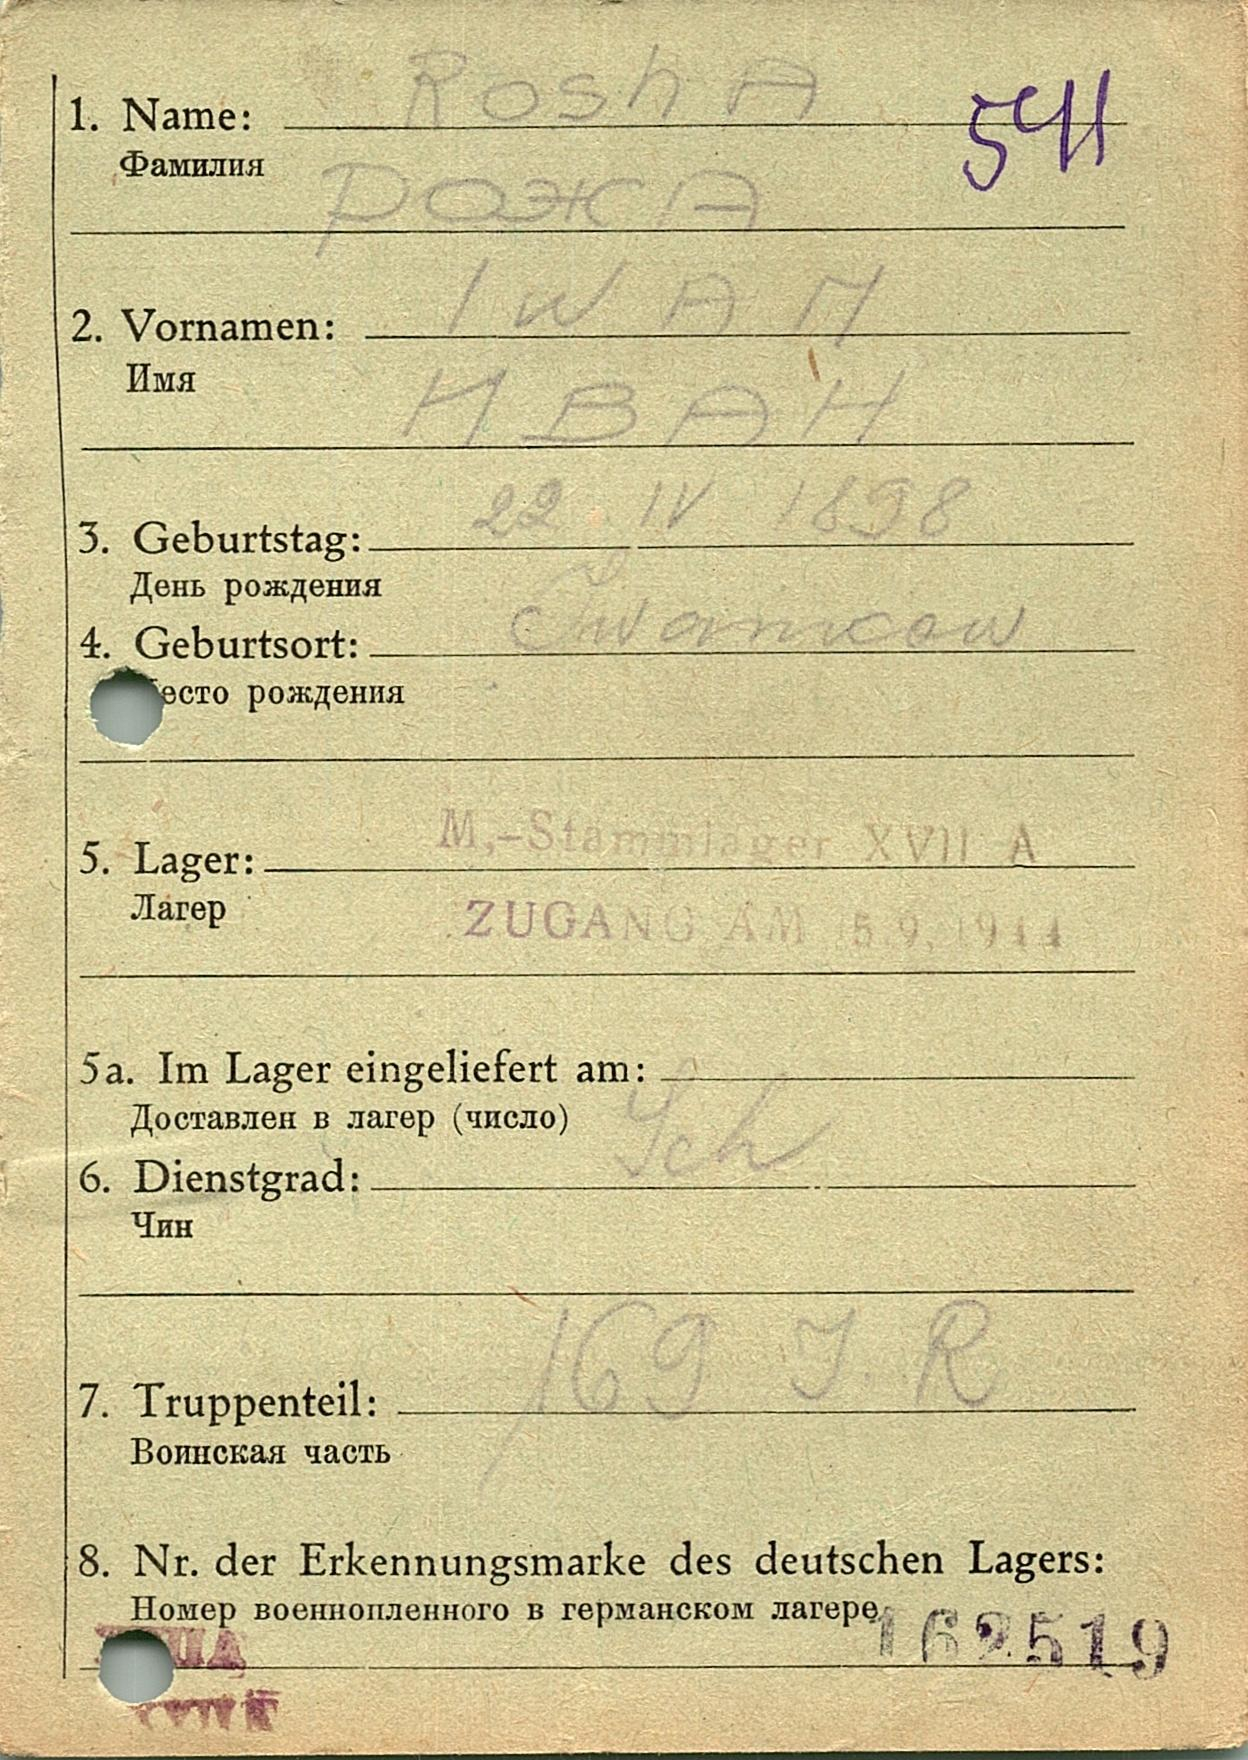 RoshA
1. Name: 541
Фамилия
РОЖА
IWAN
2. Vornamen:
Имя
ИВАН
22 IV 1898
3. Geburtstag:
День рождения
4. Geburtsort:
есто рождения
M.-Stammlager XVII A
5. Lager:
Лагер
ZUGANG AM 5.9.1944
5a. Im Lager eingeliefert am:
Доставлен в лагер (число)
6. Dienstgrad:
Чин
169 J. R
7. Truppenteil:
Воинская часть
8. Nr. der Erkennungsmarke des deutschen Lagers:
Номер военнопленного в германском лагере
162519